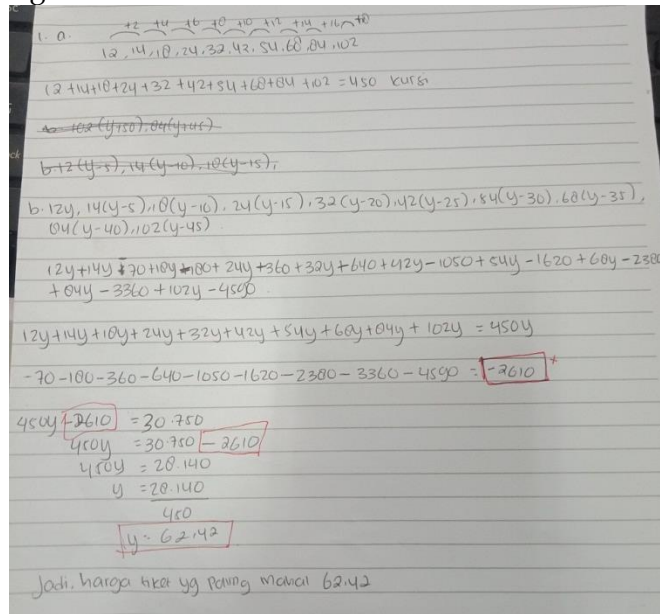 1. a. +2 +4 +6 +8 +10 +12 +14 +16 +18
12, 14, 18, 24, 32, 42, 54, 68, 84, 102
12 + 14 + 18 + 24 + 32 + 42 + 54 + 68 + 84 + 102 = 450 kursi
102 (y+50), 84(y+45)
b. 12 (y-5), 14 (y-10), 18(y-15),
b. 12y, 14(y-5), 18(y-10), 24(y-15), 32(y-20), 42(y-25), 54(y-30), 68(y-35),
84(y-40), 102(y-45)
12y+14y-70+18y-180+24y+360+32y+640+42y-1050+54y-1620+68y-2380
+84y-3360+102y-4590
12y+14y+18y+24y+32y+42y+54y+68y+84y+102y = 450y
-70-180-360-640-1050-1620-2380-3360-4590 = -2610
450y -2610 = 30.750
450y = 30.750 - 2610
450y = 28.140
y = 28.140
450
y = 62,42
Jadi, harga tiket yg paling mahal 62.42